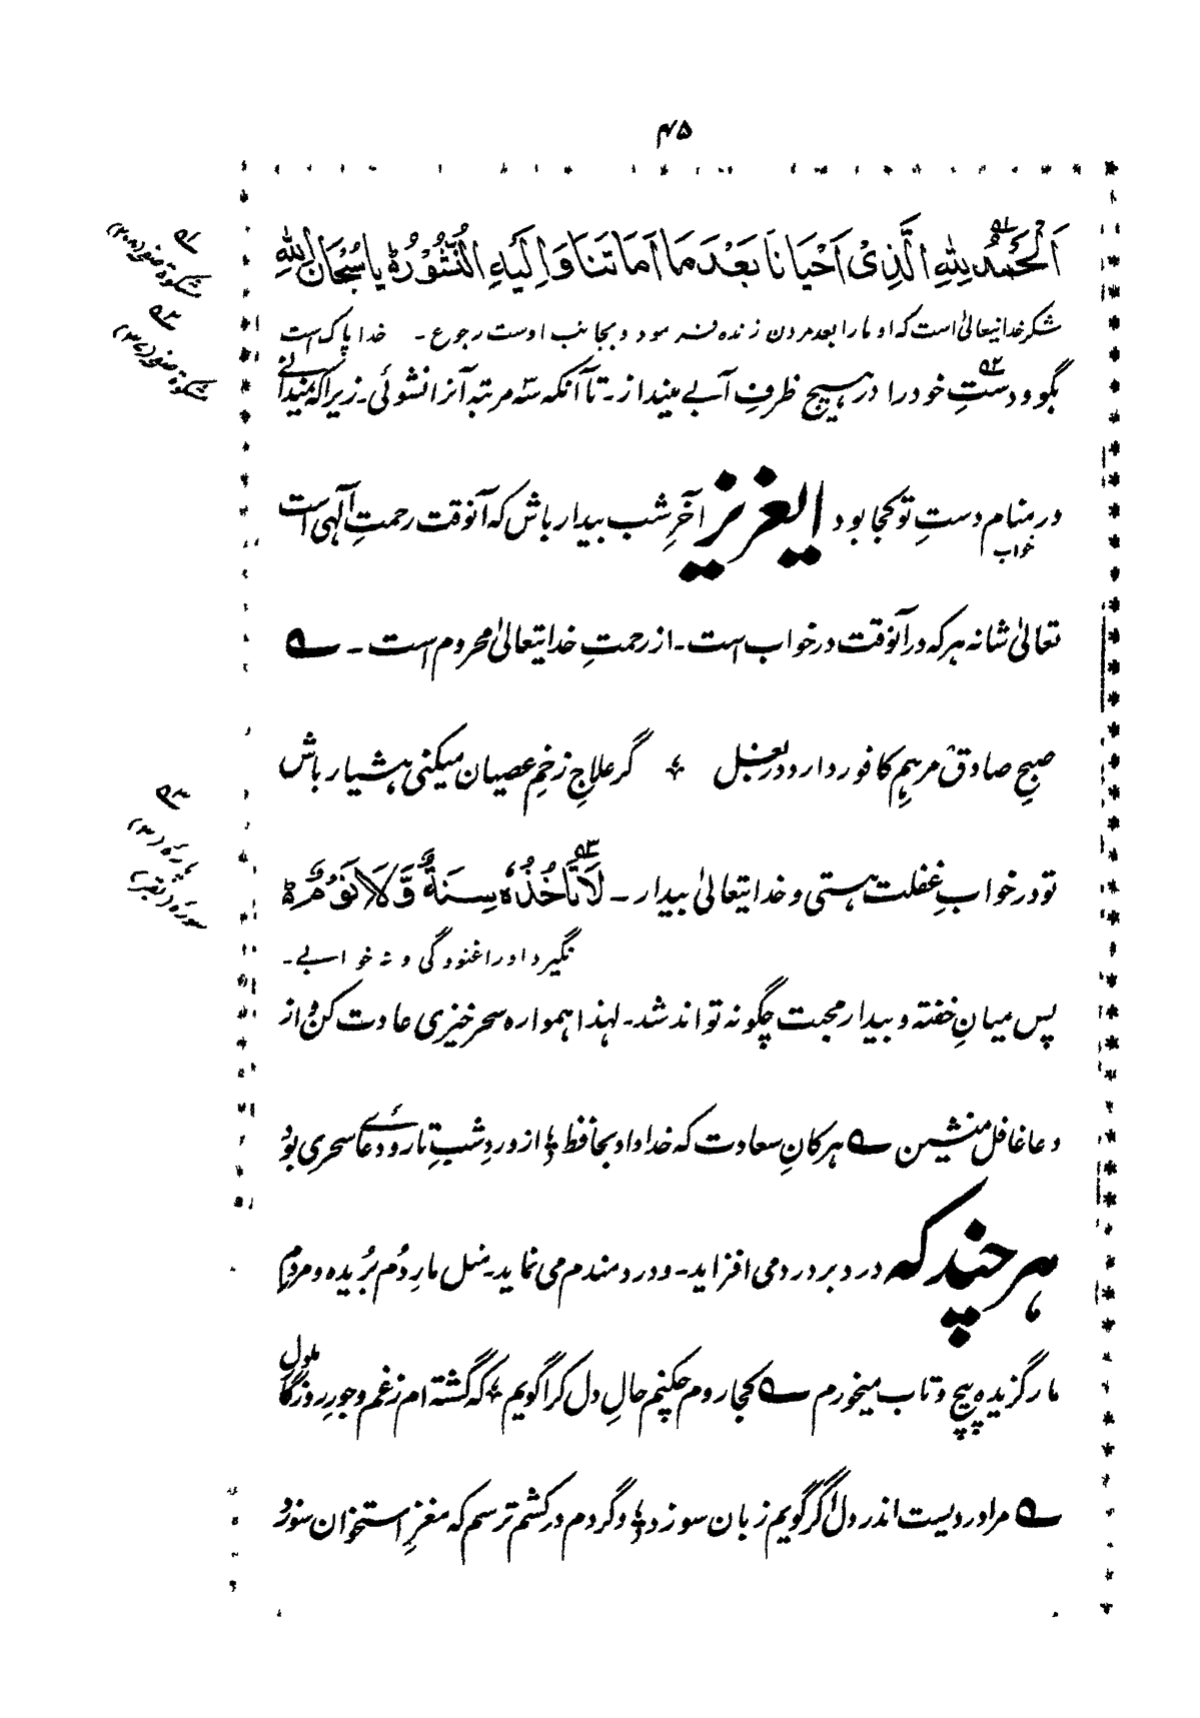 ۴۵
اَلْحَمْدُ لِلّٰهِ الَّذِیْ اَحْیَانَا بَعْدَ مَا اَمَاتَنَا وَاِلَیْهِ النُّشُوْرُ ۵ یا سُبْحَانَ اللّٰهِ
شکر خدایتعالیٰ است که او مارا بعد مردن زنده فرمود و بجانب اوست رجوع ۔ خدا پاک است
بگو و دستِ خود را در هیچ ظرفِ آبے مینداز ۔ تا آنکه سه مرتبه آنرا نشوئی ۔ زیرا که نمیدانے
در منام دستِ تو کجا بود ایعزیز آخرِ شب بیدار باش که آنوقت رحمتِ الٰهی است
خواب
تعالیٰ شانه هر که در آنوقت در خواب است ۔ از رحمتِ خدایتعالیٰ محروم است ۔
صبحِ صادق مرهمِ کافور دارد در بغل گر علاجِ زخمِ عصیان میکنی هشیار باش
تو در خوابِ غفلت هستی و خدایتعالیٰ بیدار ۔ لَا تَاْخُذُهٗ سِنَةٌ وَّلَا نَوْمٌ ۵
نگیرد او را غنودگی و نه خوابے ۔
پس میانِ خفته و بیدار محبت چگونه تواند شد ۔ لهذا همواره سحر خیزی عادت کن و از
دعا غافل منشین ؎ هر کانِ سعادت که خدا داد بحافظ از وردِ شبِ تار و دعائے سحری بود
هر چند که درد بر درد می افزاید ۔ و دردمندم می نماید ۔ مثل مارِ دُم بُریده و مردم
مار گزیده پیچ و تاب میخورم ؎ کجا روم چکنم حالِ دل کرا گویم که گشته ام ز غم و جورِ روزگار ملول
؎ مرا دردیست اندر دل اگر گویم زبان سوزد وگر دم در کشم ترسم که مغزِ استخوان سوزد
۵۱
مشکوٰة صفحہ (۲۰۸)
۵۲
مشکوٰة صفحہ
۵۳
پاره (۳)
سوره (بقره)